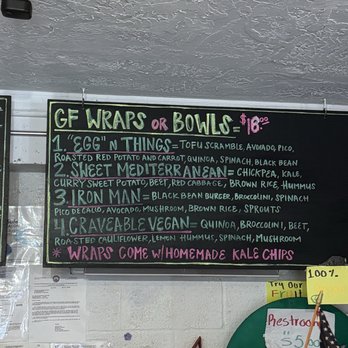 GF WRAPS OR BOWLS = $18.00
1. "EGG" N THINGS = TOFU SCRAMBLE, AVOVADO, PICO,
ROASTED RED POTATO AND CARROT, QUINOA, SPINACH, BLACK BEAN
2. SWEET MEDITERRANEAN = CHICKPEA, KALE,
CURRY SWEET POTATO, BEET, RED CABBAGE, BROWN RICE, HUMMUS
3. IRON MAN = BLACK BEAN BURGER, BROCCOLINI, SPINACH
PICO DE GALLO, AVOCADO, MUSHROOM, BROWN RICE, SPROUTS
4. CRAVEABLE VEGAN = QUINOA, BROCCOLINI, BEET,
ROASTED CAULIFLOWER, LEMON HUMMUS, SPINACH, MUSHROOM
* WRAPS COME W/ HOMEMADE KALE CHIPS
100%
Try Our
Fruit
Restroom
$5.00